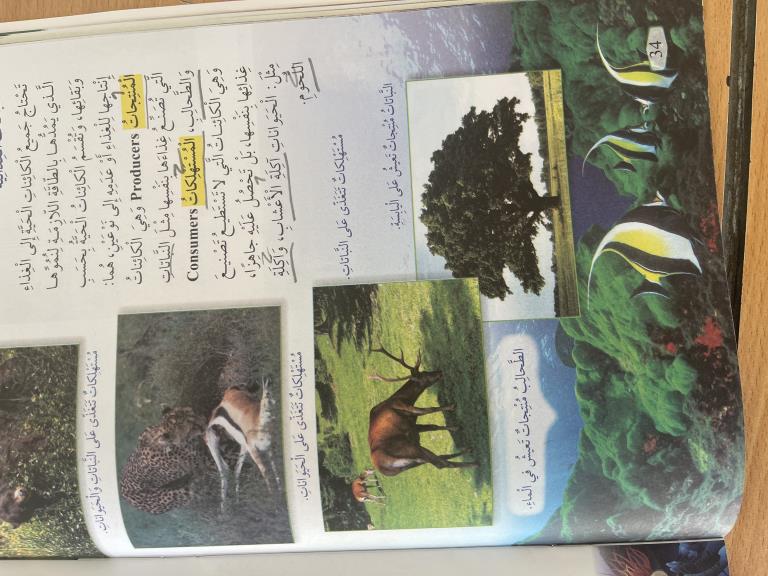 تَحْتاجُ جَميعُ الْكائِناتِ الْحَيَّةِ إِلى الْغِذاءِ
الَّذي يَمُدُّها بِالطّاقَةِ اللّازِمَةِ لِنُمُوِّها
وَبَقائِها، وَتُقْسَمُ الْكائِناتُ الْحَيَّةُ بِحَسَبِ
إِنْتاجِها لِلْغِذاءِ أَوْ عَدَمِهِ إِلى نَوْعَيْنِ، هُما:
الْمُنْتِجاتُ Producers وَهِيَ الْكائِناتُ
الَّتي تَصْنَعُ غِذاءَها بِنَفْسِها مِثْلَ النَّباتاتِ
وَالطَّحالِبِ، الْمُسْتَهْلِكاتُ Consumers
وَهِيَ الْكائِناتُ الَّتي لا تَسْتَطيعُ تَصْنيعَ
غِذائِها بِنَفْسِها، بَلْ تَحْصُلُ عَلَيْهِ جاهِزًا،
مِثْلُ: الْحَيَواناتِ آكِلَةِ الْأَعْشابِ، وَآكِلَةِ
اللُّحُومِ.
مُسْتَهْلِكاتٌ تَتَغَذّى عَلى النَّباتاتِ.
النَّباتاتُ مُنْتِجاتٌ تَعيشُ عَلى الْيابِسَةِ.
مُسْتَهْلِكاتٌ تَتَغَذّى عَلى النَّباتاتِ وَالْحَيَواناتِ.
مُسْتَهْلِكاتٌ تَتَغَذّى عَلى الْحَيَواناتِ.
الطَّحالِبُ مُنْتِجاتٌ تَعيشُ في الْماءِ.
34